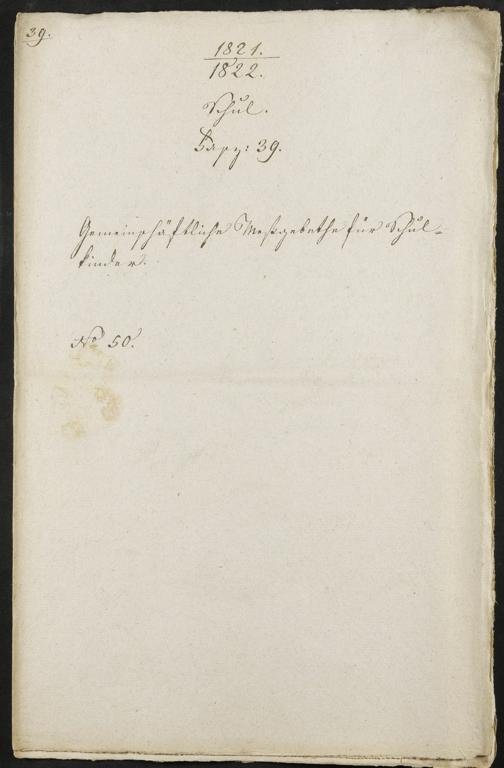 39.
1821.
1822.
Schul.
39.
Gemeinschäftliche Meßgebethe für Schul-
kinder.
No 50.